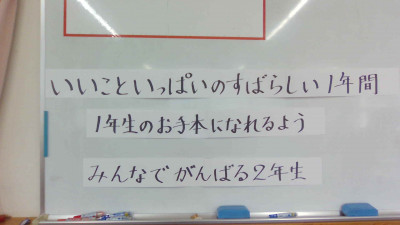 いいこといっぱいのすばらしい1年間
1年生のお手本になれるよう
みんなでがんばる2年生